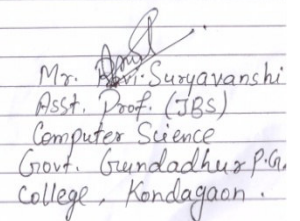 Mr. Ravi Suryavanshi
Asst. Prof. (JBS)
Computer Science
Govt. Gundadhur P.G.
College, Kondagaon.